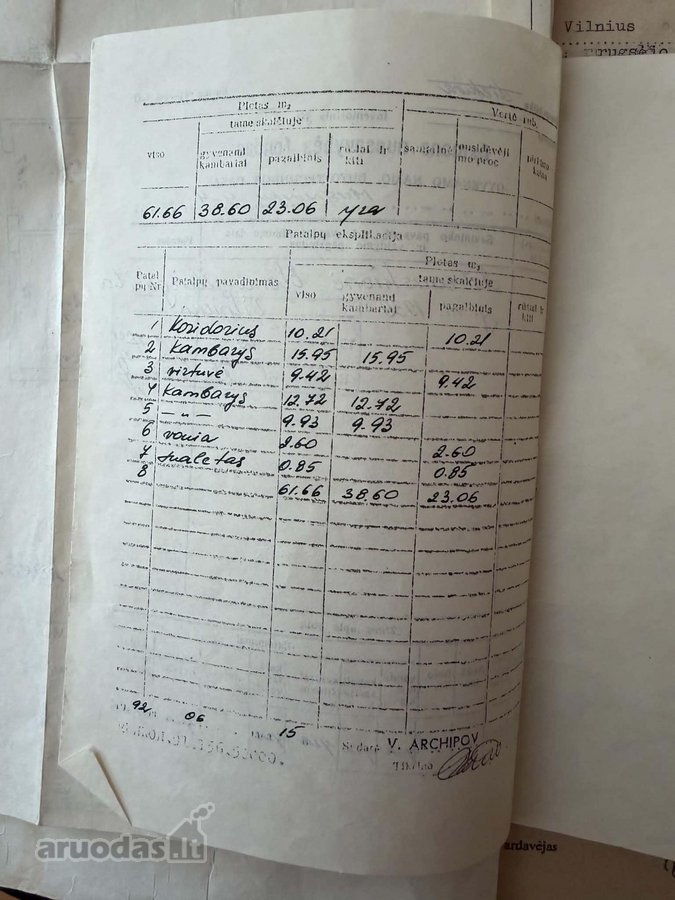 Vilnius
Plotas m₂
Vertė rub.
tame skaičiuje
viso
gyvenami kambariai
pagalbinis
rūsiai ir kiti
61.66 38.60 23.06 yra
Patalpų eksplikacija
Patal pų Nr
Patalpų pavadinimas
Plotas m₂
tame skaičiuje
viso
gyvenami kambariai
pagalbinis
rūsiai ir kiti
1 Koridorius 10.21 10.21
2 Kambarys 15.95 15.95
3 virtuvė 9.42 9.42
4 Kambarys 12.72 12.72
5 —"— 9.93 9.93
6 vonia 2.60 2.60
7 tualetas 0.85 0.85
8 61.66 38.60 23.06
92 06 15
Sudarė V. ARCHIPOV
Tikrino
aruodas.lt
ardavėjas